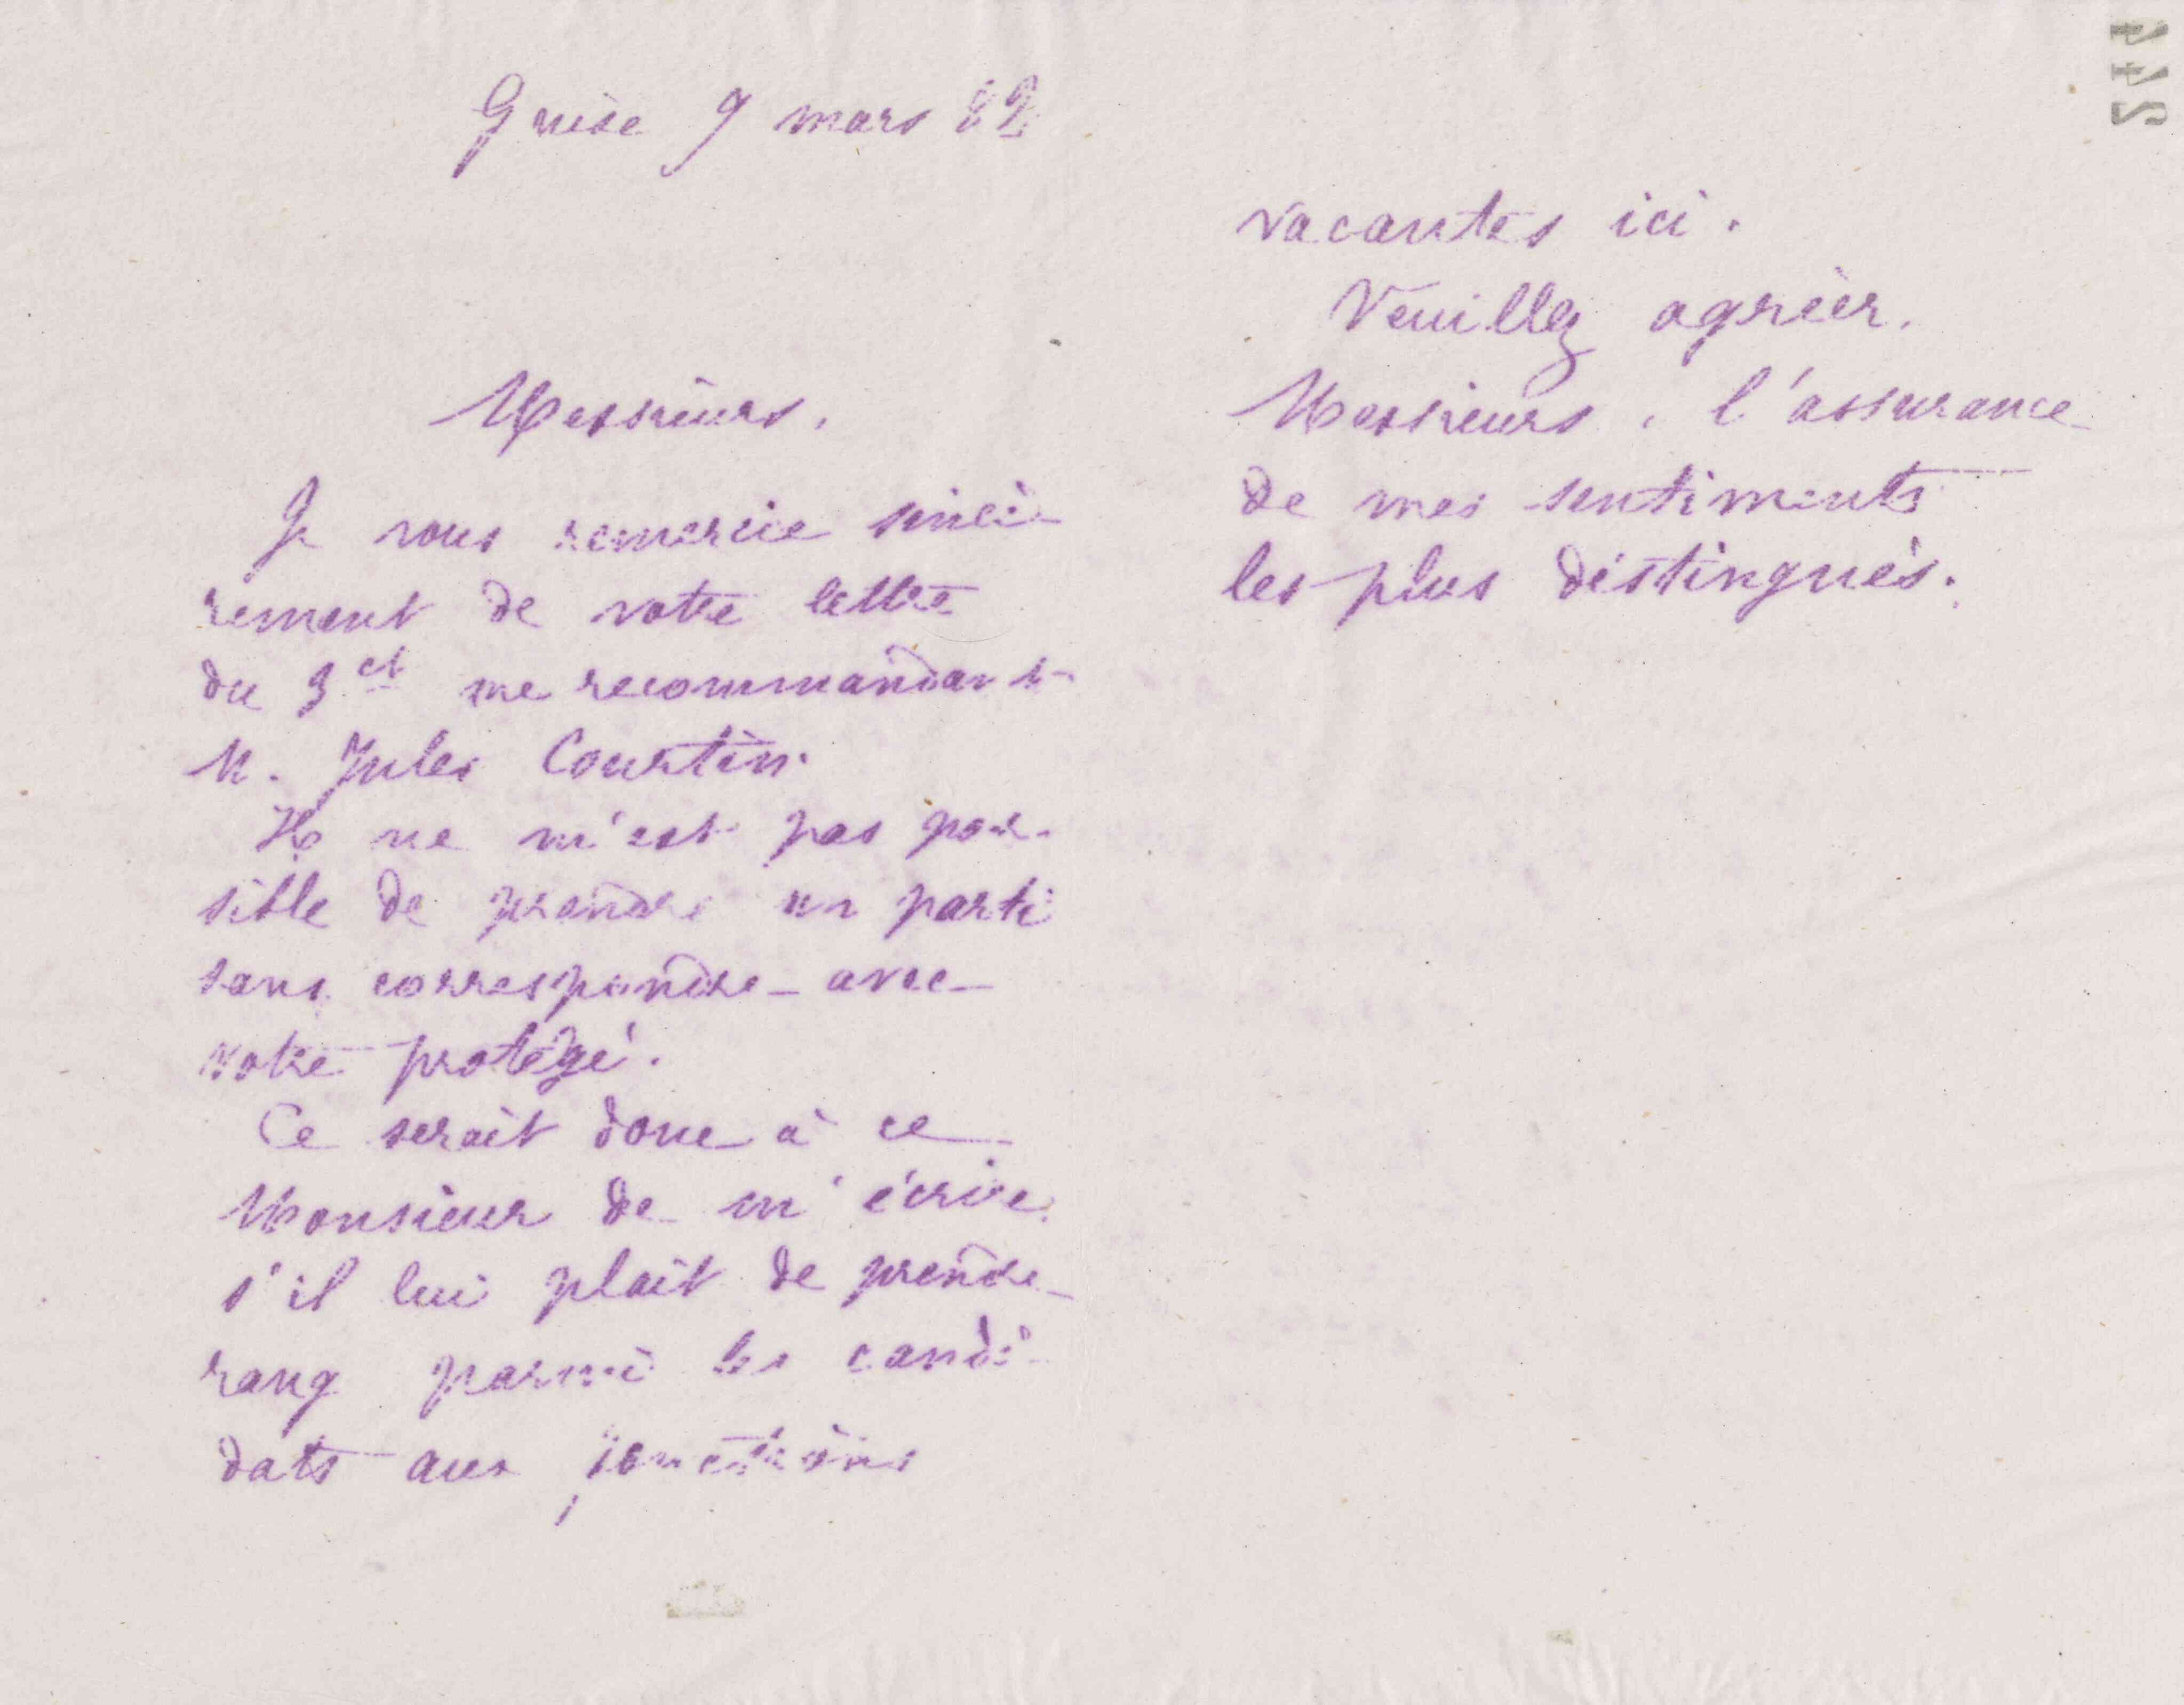 Guise 9 mars 82
Messieurs,
Je vous remercie sincè-
rement de votre lettre
du 3 ct me recommandant
M. Jules Courtin.
Il ne m'est pas pos-
sible de prendre un parti
sans correspondre avec
votre protégé.
Ce serait donc à ce
Monsieur de m'écrire
s'il lui plait de prendre
rang parmi les candi-
dats aux fonctions
vacantes ici.
Veuillez agréer,
Messieurs, l'assurance
de mes sentiments
les plus distingués.
442